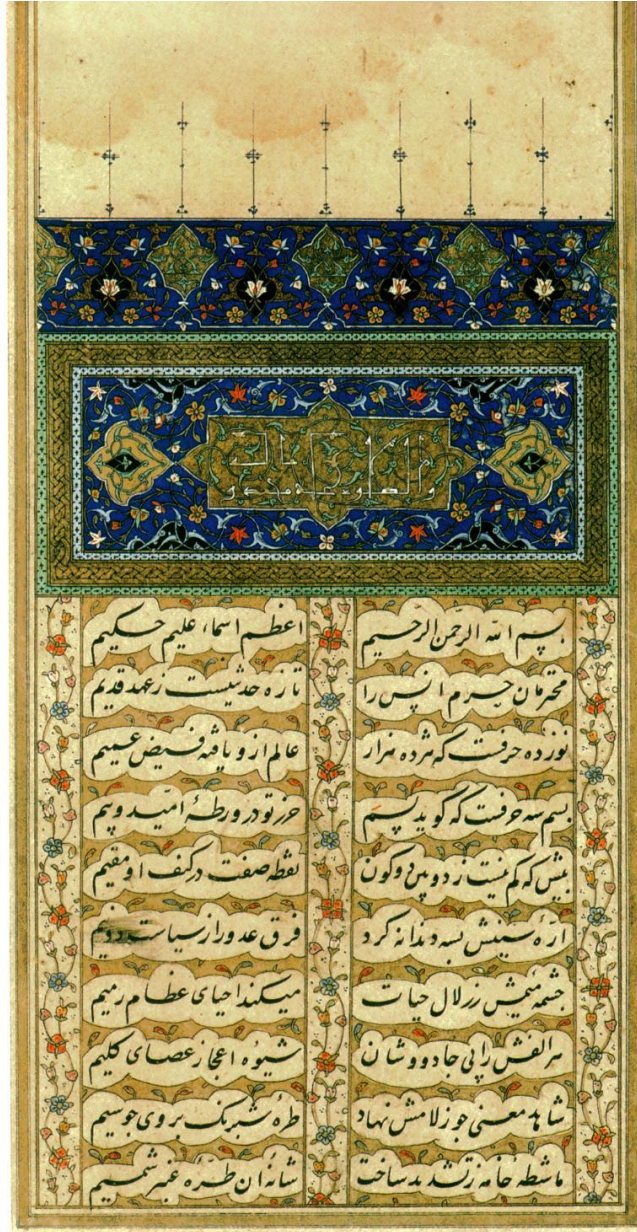 بسم الله الرحمن الرحیم اعظم اسماء علیم حکیم
محترمان حرم انس را تازه حدیثیست ز عهد قدیم
نوزده حرفست که هژده هزار عالم ازو یافته فیض عمیم
بسم سه حرفست که گوید بسم حرز تو در ورطهٔ امید وبیم
بینش که کم نیست ز دو بین دو کون نقطه صفت در کنف او مقیم
ارهٔ سینش بسه دندانه کرد فرق عدو را ز سیاست دو نیم
چشمه میمش ز زلال حیات میکند احیای عظام رمیم
مر الفش را پی جادووشان شیوه اعجاز عصای کلیم
شاهد معنی چو ز لامش نهاد طره شبرنک بر وی چو سیم
ماشطه خامه ز تشدید ساخت شانه ان طره عنبر شمیم